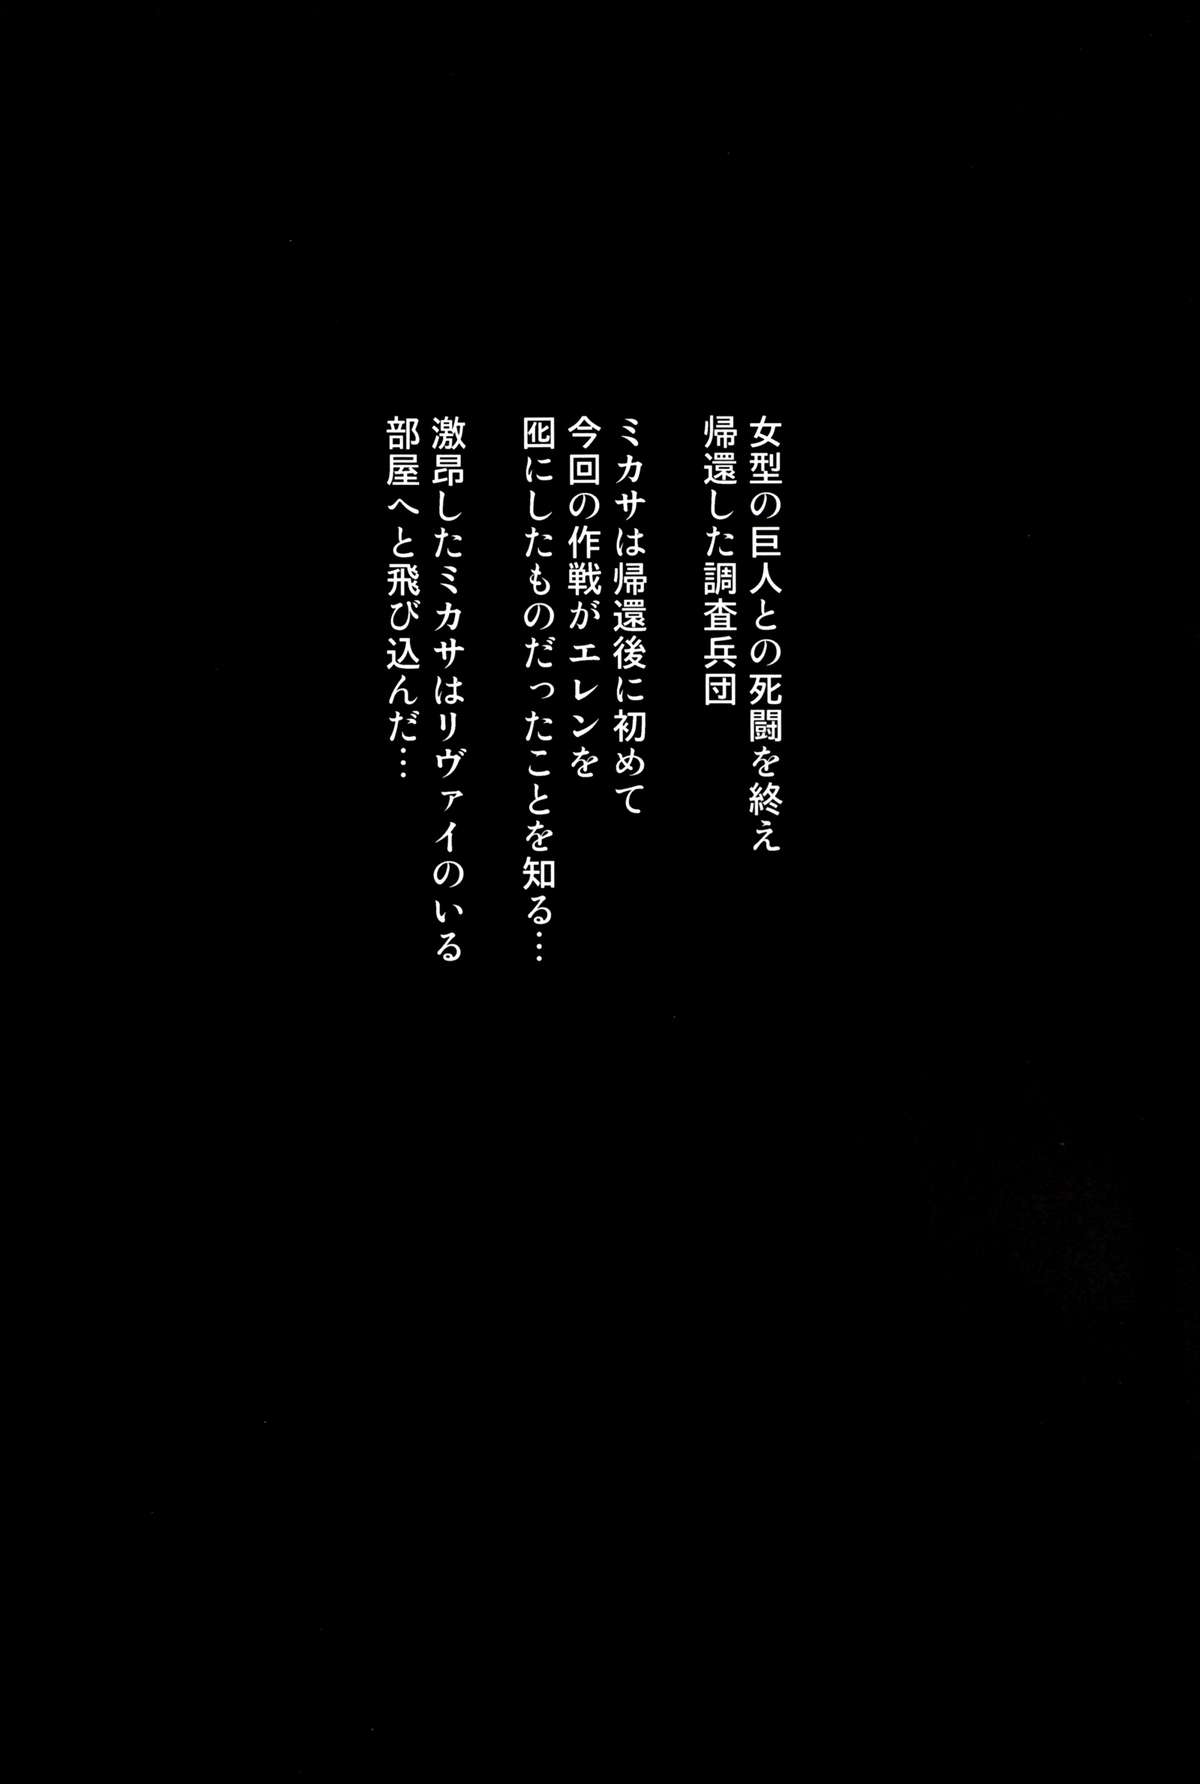 女型の巨人との死闘を終え
帰還した調査兵団
ミカサは帰還後に初めて
今回の作戦がエレンを
囮にしたものだったことを知る…
激昂したミカサはリヴァイのいる
部屋へと飛び込んだ…